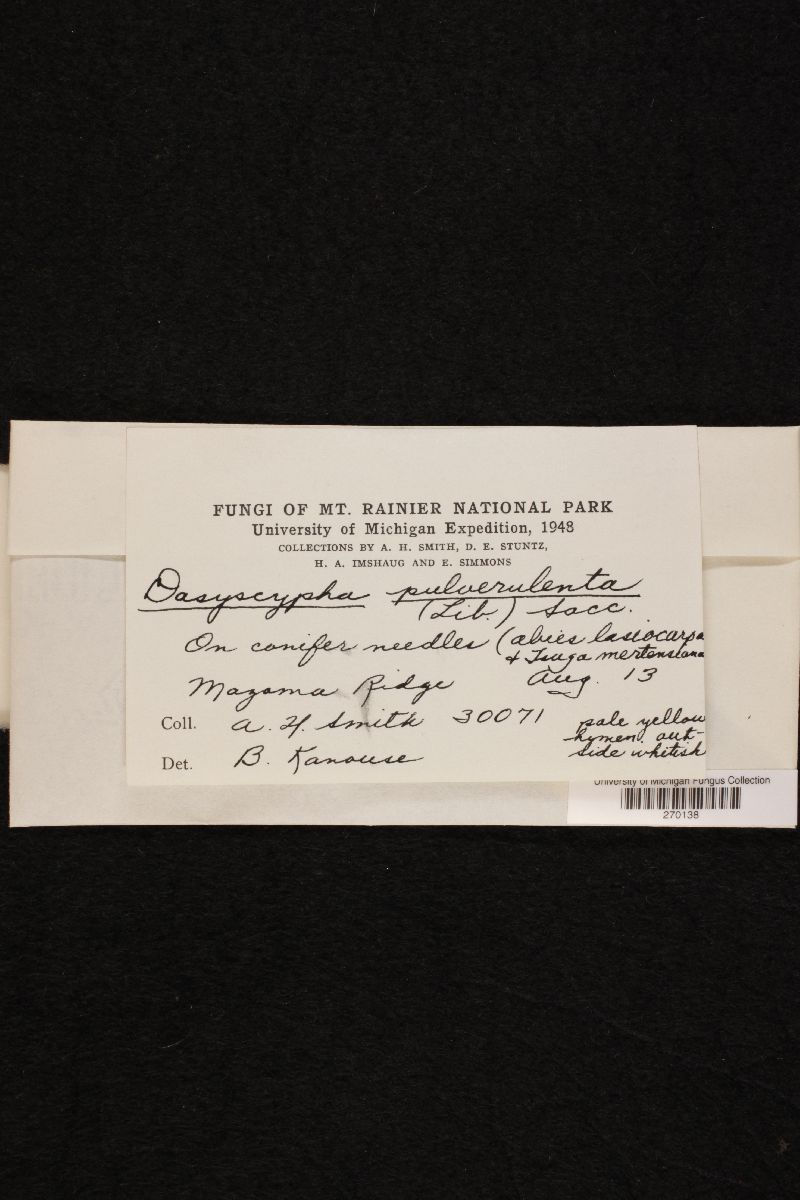 FUNGI OF MT. RAINIER NATIONAL PARK
University of Michigan Expedition, 1948
COLLECTIONS BY A. H. SMITH, D. E. STUNTZ,
H. A. IMSHAUG AND E. SIMMONS
Dasyscypha pulverulenta
(Lib.) Sacc.
On conifer needles (abies lasiocarpa
& Tsuga mertensiana
Mazama Ridge Aug. 13
Coll. A. H. Smith 30071
pale yellow
hymen. out-
side whitish
Det. B. Kanouse
University of Michigan Fungus Collection
270138